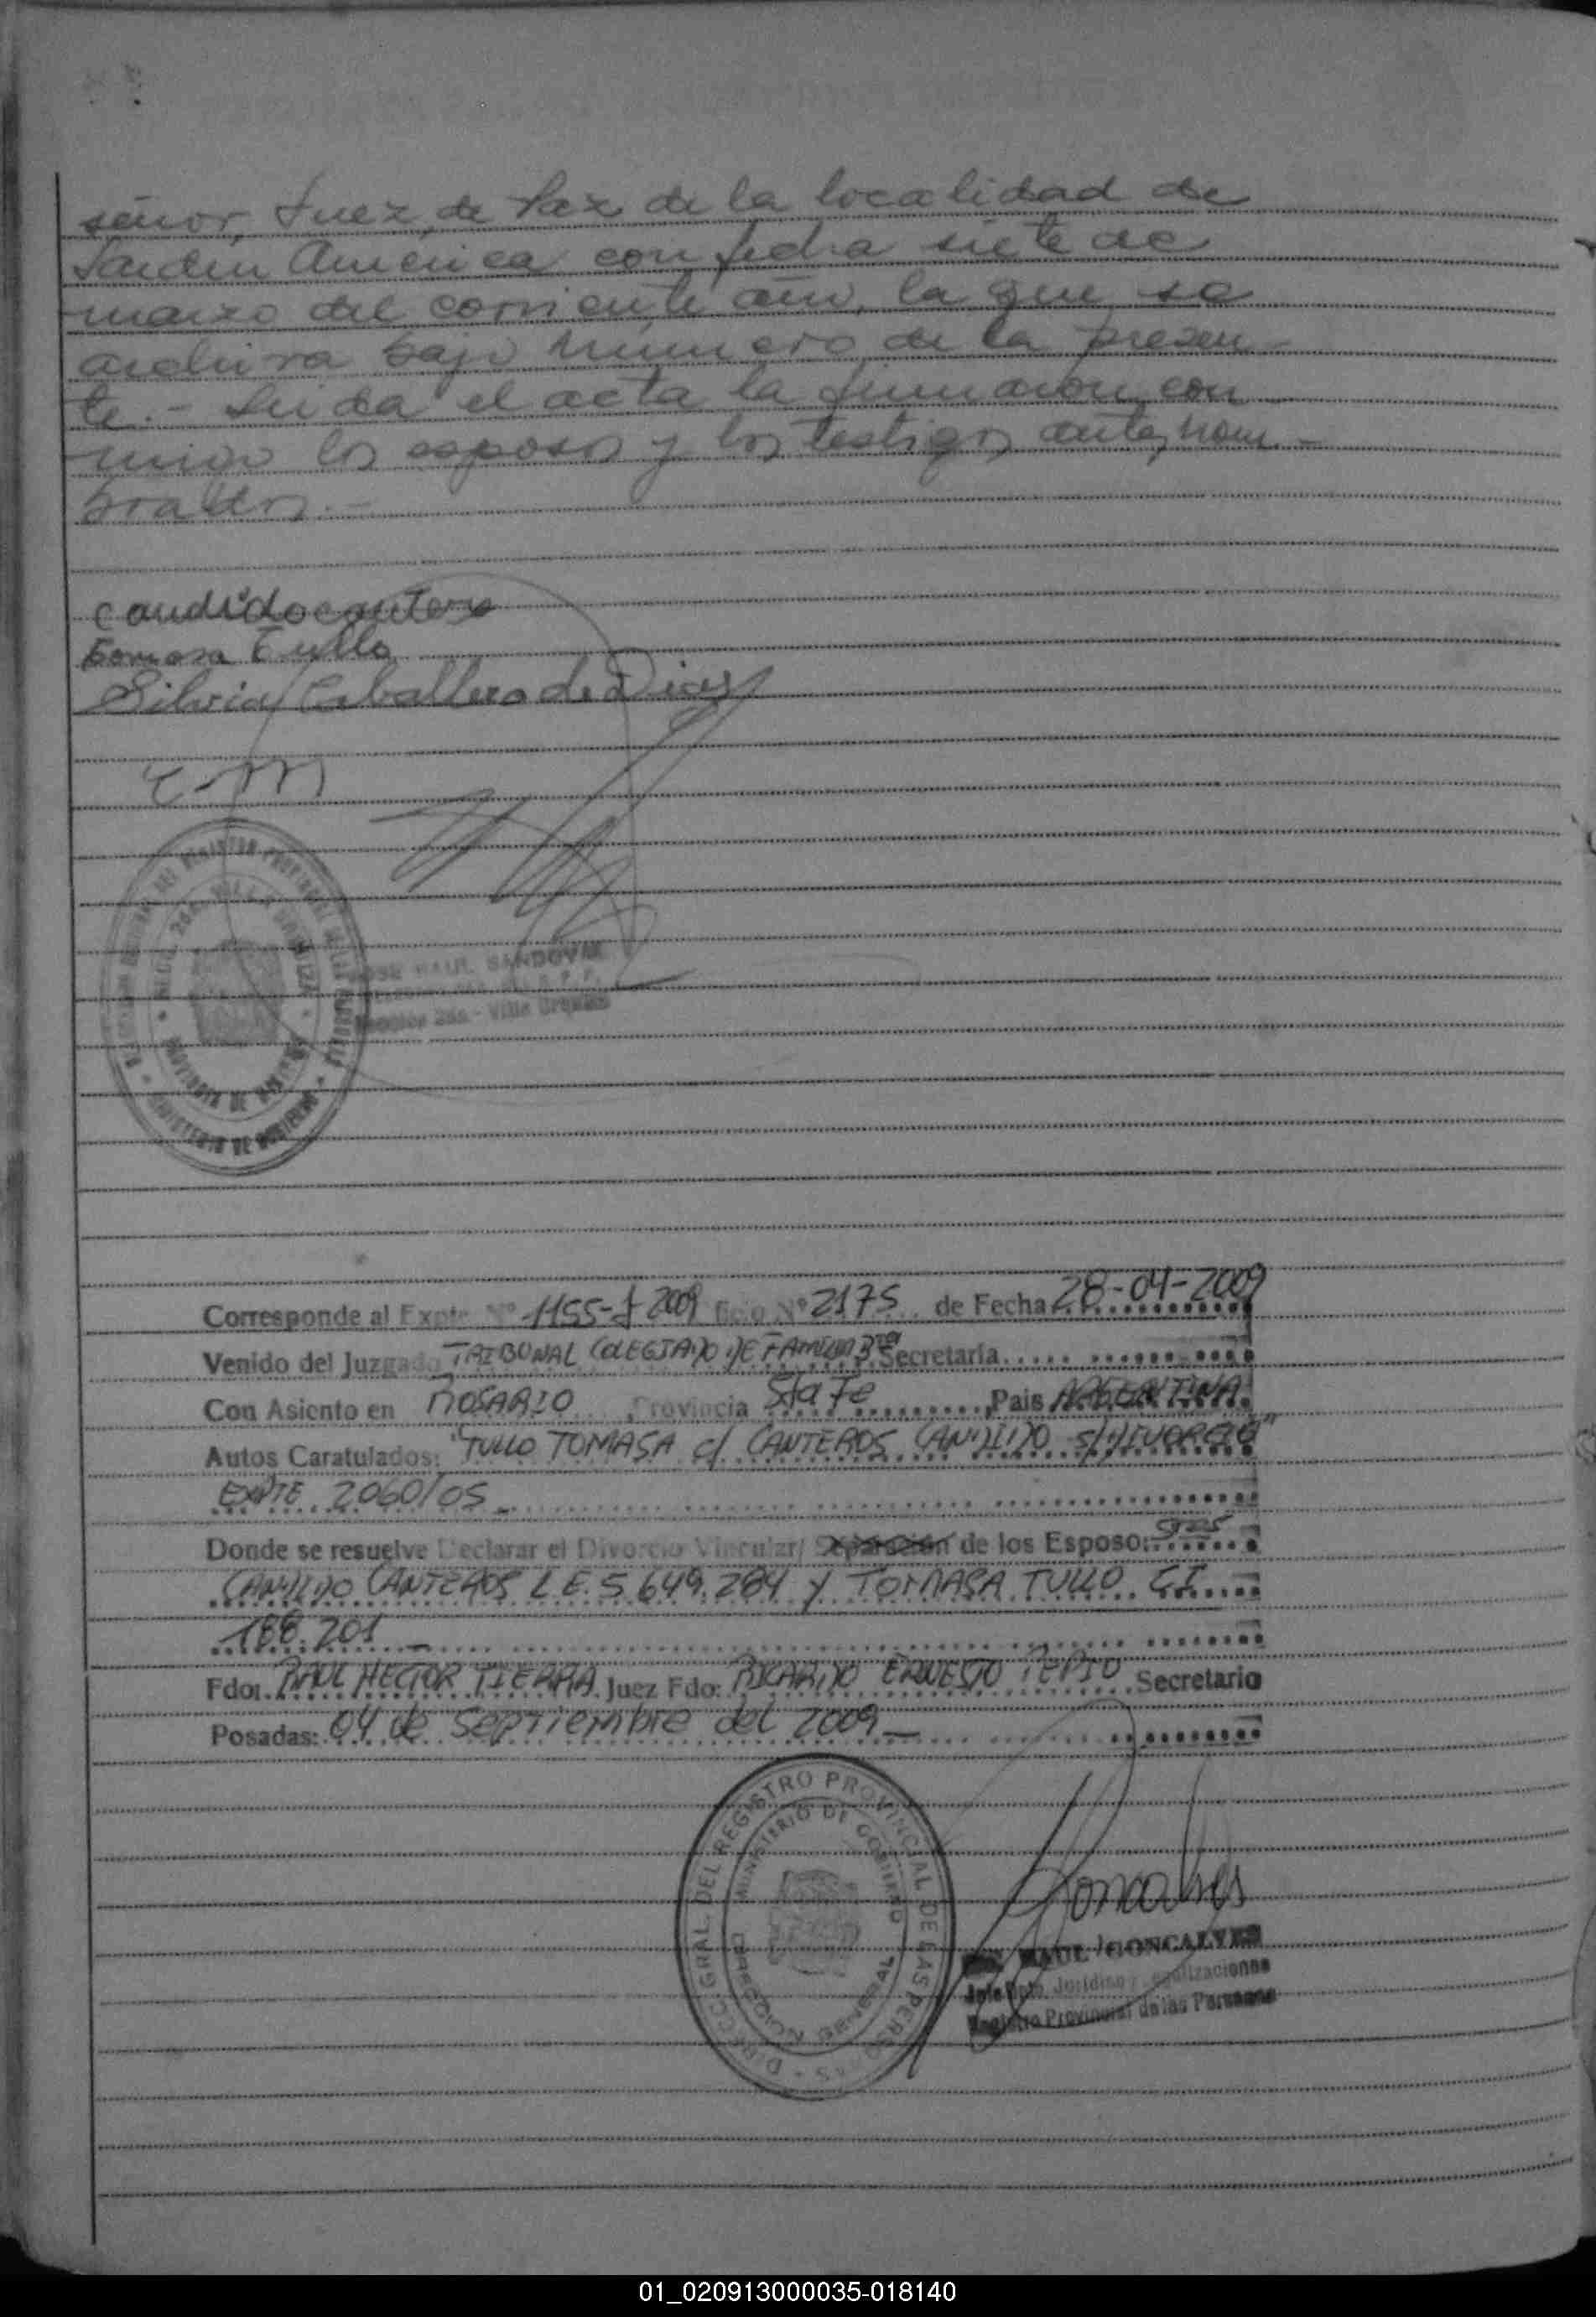 señor, Juez de Paz de la localidad de
Jardin America con fecha siete de
marzo del corriente año, la que se
archiva bajo número de la presen-
te.- Leida el acta la firmaron con-
migo los esposos y los testigos antes nom-
brados.-
Candido canteros
Tomasa Tullo
Silvia Caballero de Dias
JOSE RAUL SANDOVAL
Villa Urquiza
MINISTERIO DE GOBIERNO
PROVINCIA DE MISIONES
Corresponde al Expte. Nº 1155-J-2009 ficio Nº 2175 de Fecha 28-04-2009
Venido del Juzgado TRIBUNAL COLEGIADO DE FAMILIA 3ra Secretaría
Con Asiento en ROSARIO Provincia Sta Fe Pais ARGENTINA
Autos Caratulados: "TULLO TOMASA c/ CANTEROS CANDIDO s/DIVORCIO"
EXPTE. 2060/05 -
Donde se resuelve Declarar el Divorcio Vincular/ Separación de los Esposo: sres
CANDIDO CANTEROS L.E. 5.649.284 y TOMASA TULLO C.I.
188.201 -
Fdo: RAUL HECTOR TIERRA Juez Fdo: RICARDO ERNESTO Secretario
Posadas: 04 de Septiembre del 2009 -
DIRECC. GRAL. DEL REGISTRO PROVINCIAL DE LAS PERSONAS
MINISTERIO DE GOBIERNO
DIRECCION GENERAL
Goncalves
RAUL GONCALVES
Jefe Dpto. Jurídico y Legalizaciones
Registro Provincial de las Personas
01_020913000035-018140